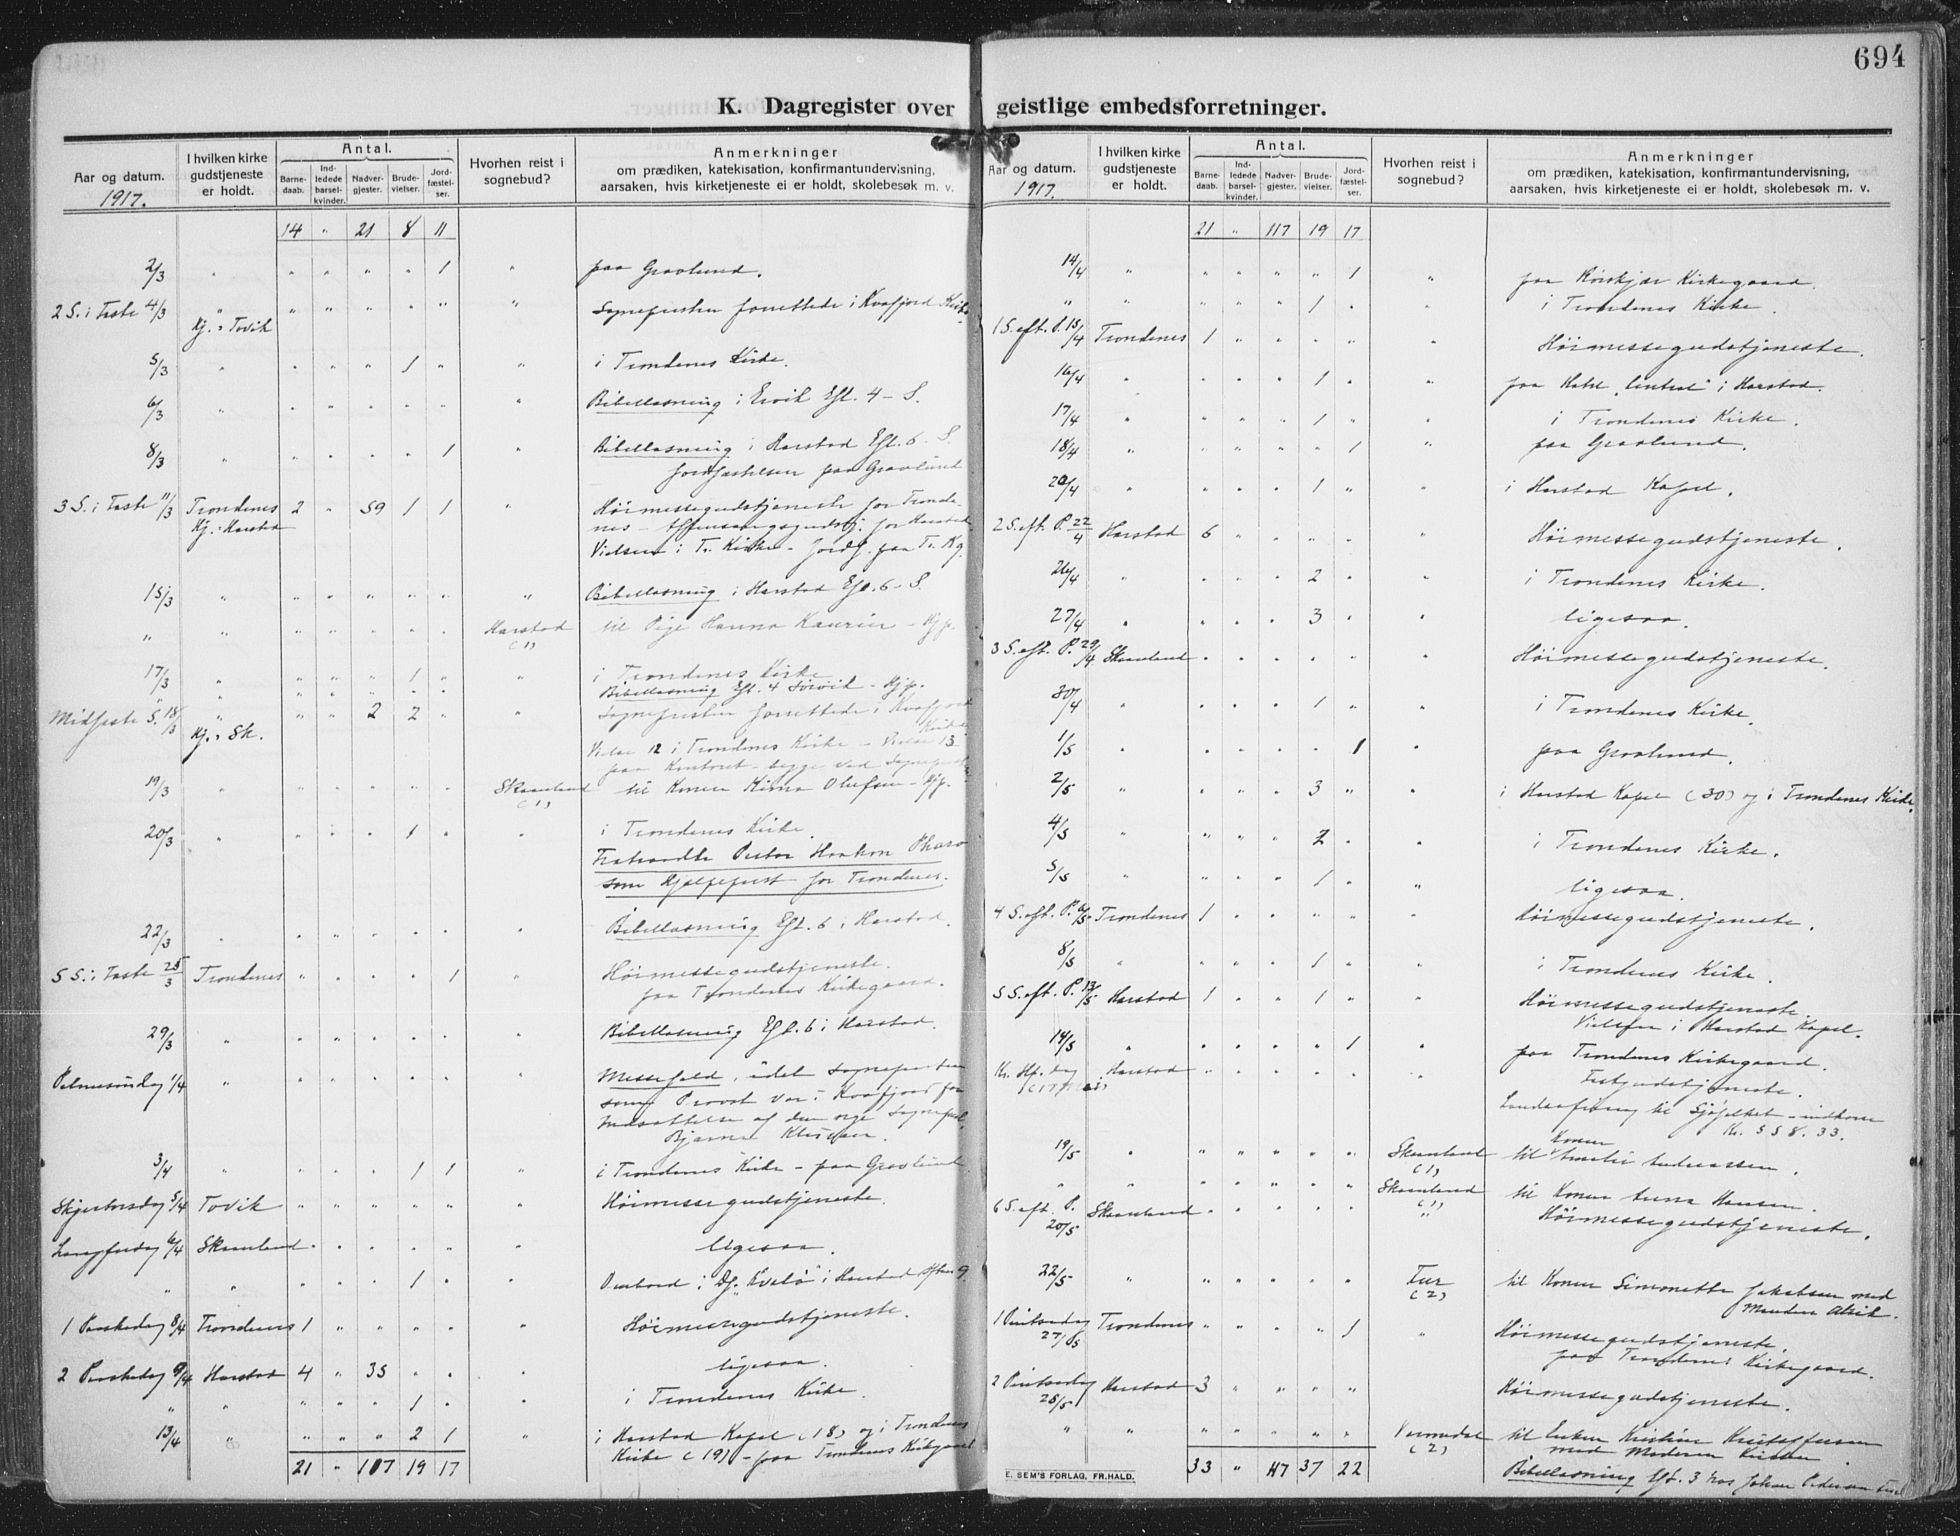 694
K. Dagregister over geistlige embedsforretninger.
Aar og datum. 1917.
I hvilken kirke gudstjeneste er holdt.
Antal.
Barnedaab.
Indledede barselkvinder.
Nadvergjester.
Brudevielser.
Jordfæstelser.
Hvorhen reist i sognebud?
Anmerkninger
om prædiken, katekisation, konfirmantundervisning,
aarsaken, hvis kirketjeneste ei er holdt, skolebesøk m. v.
14 " 21 8 11
2/3 " " " " " 1 " paa Gravlund.
2 S. i Faste 4/3 " " " " " " " Sognepresten forrettede i Kvæfjord Kirke.
Hj. i Tovik
5/3 " " " " 1 " " i Trondenes Kirke.
6/3 " " " " " " " Bibellæsning i Ervik Efl. 4 - S.
8/3 " " " " " 1 " Bibellæsning i Harstad Efl. 6 - S.
Jordfæstelsen paa Gravlund
3 S. i Faste 11/3 Trondenes 2 " 59 1 1 " Høimessegudstjeneste for Tronde-
Hj. i Harstad nes - Aftensangsgudstj. for Harstad.
Vielsen i Tr. Kirke - Jordf. paa Tr. Kg.
15/3 " " " " " " " Bibellæsning i Harstad Efl. 6 - S.
" " " " " " " Harstad (1) til Pige Hanna Kaurin - Hjp.
17/3 " " " " 1 " " i Trondenes Kirke
" " " " " " Bibellæsning Efl. 4 Sørvik - Hjp.
Midfaste S. 18/3 " " " 2 2 " " Sognepresten forrettede i Kvæfjord
Kirke
Hj. i Sk. Vielse 12 i Trondenes Kirke - Vielse 13
paa Kontoret - begge ved Sognepr.
19/3 " " " " " " Skaanland (1) til Konen Kirna Olufsen - Hjp.
20/3 " " " " 1 " " i Trondenes Kirke
Fratraadte Pastor Haakon
som Hjælpeprest for Trondenes.
22/3 " " " " " " " Bibellæsning Efl. 6 i Harstad.
5 S. i Faste 25/3 Trondenes " " " " 1 " Høimessegudstjeneste.
paa Trondenes Kirkegaard.
29/3 " " " " " " " Bibellæsning Efl. 6 i Harstad.
Palmesøndag 1/4 " " " " " " " Messefald, idet Sognepresten
som Provst var i Kvæfjord for
Indsættelse af den nye Sognepr.
Bjarne
3/4 " " " " 1 1 " i Trondenes Kirke - paa Gravlund.
Skjærtorsdag 5/4 Tovik " " " " " " Høimessegudstjeneste.
Langfredag 6/4 Skaanland " " " " " " ligesaa.
" " " " " 1 " " Ombord i D/ "Kvalø" i Harstad Aften 9
1 Paaskedag 8/4 Trondenes 1 " " " " " Høimessegudstjeneste.
2 Paaskedag 9/4 Harstad 4 " 35 " " " ligesaa.
" " " " " 1 " " i Trondenes Kirke.
13/4 " " " " 2 1 " i Harstad Kapel (18) og i Trondenes
Kirke (19) - paa Trondenes Kirkegaard
21 " 117 19 17
Aar og datum. 1917.
I hvilken kirke gudstjeneste er holdt.
Antal.
Barnedaab.
Indledede barselkvinder.
Nadvergjester.
Brudevielser.
Jordfæstelser.
Hvorhen reist i sognebud?
Anmerkninger
om prædiken, katekisation, konfirmantundervisning,
aarsaken, hvis kirketjeneste ei er holdt, skolebesøk m. v.
21 " 117 19 17
14/4 " " " " " 1 " paa Kirkegaard.
" " " " " 1 " i Trondenes Kirke.
1 S. eft. P. 15/4 Trondenes 1 " " " " Høimessegudstjeneste.
16/4 " " " " 1 " " paa Hotel "Central" i Harstad.
17/4 " " " " 1 " " i Trondenes Kirke.
18/4 " " " " " 1 " paa Gravlund.
20/4 " " " " 1 " " i Harstad Kapel.
2 S. eft. P. 22/4 Harstad 6 " " " " Høimessegudstjeneste.
26/4 " " " " 2 " " i Trondenes Kirke.
27/4 " " " " 3 " " ligesaa.
3 S. eft. P. 29/4 Skaanland " " " " " " Høimessegudstjeneste.
30/4 " " " " 1 " " i Trondenes Kirke.
1/5 " " " " " 1 " paa Gravlund.
2/5 " " " " 3 " " i Harstad Kapel (30) og i Trondenes Kirke.
4/5 " " " " 2 " " i Trondenes Kirke.
5/5 " " " " 1 " " ligesaa.
4 S. eft. P. 6/5 Trondenes 1 " " " " " Høimessegudstjeneste.
8/5 " " " " 1 " " i Trondenes Kirke.
5 S. eft. P. 13/5 Harstad 1 " " 1 " " Høimessegudstjeneste.
Vielsen i Harstad Kapel.
14/5 " " " " " 1 " paa Trondenes Kirkegaard.
Kr. Hf. dag (17 Mai) Harstad " " " " " " Festgudstjeneste.
til Sjøfolket - indkom
Kr. 558.33.
19/5 " " " " " " Skaanland (1) til Konen Andreassen.
" " " " " " Skaanland (1) til Konen Anna Hansen.
6 S. eft. P. 20/5 Skaanland " " " " " " Høimessegudstjeneste.
22/5 " " " " " " (2) til Konen Simonette Jakobsen med
Manden
1 Pintsedag 27/5 Trondenes " " " " 1 " Høimessegudstjeneste.
paa Trondenes Kirkegaard.
2 Pintsedag 28/5 Harstad 3 " " " " Høimessegudstjeneste.
" " " " " " " (2) til Enken Kristine Kristoffersen
med Moderen
33 " 117 37 22 Bibellæsning Efl. 3 hos Johan Pedersen
E. SEM'S FORLAG, FR.HALD.